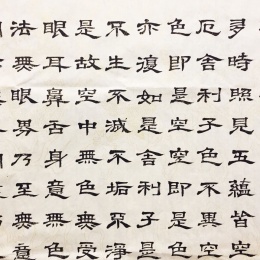 多時照見五蘊皆空
厄舍利子色不異空
色即是空空即是色
亦復如是舍利子是
不生不滅不垢不淨
是故空中無色無受
眼耳鼻舌身意無色
法無眼界乃至無意